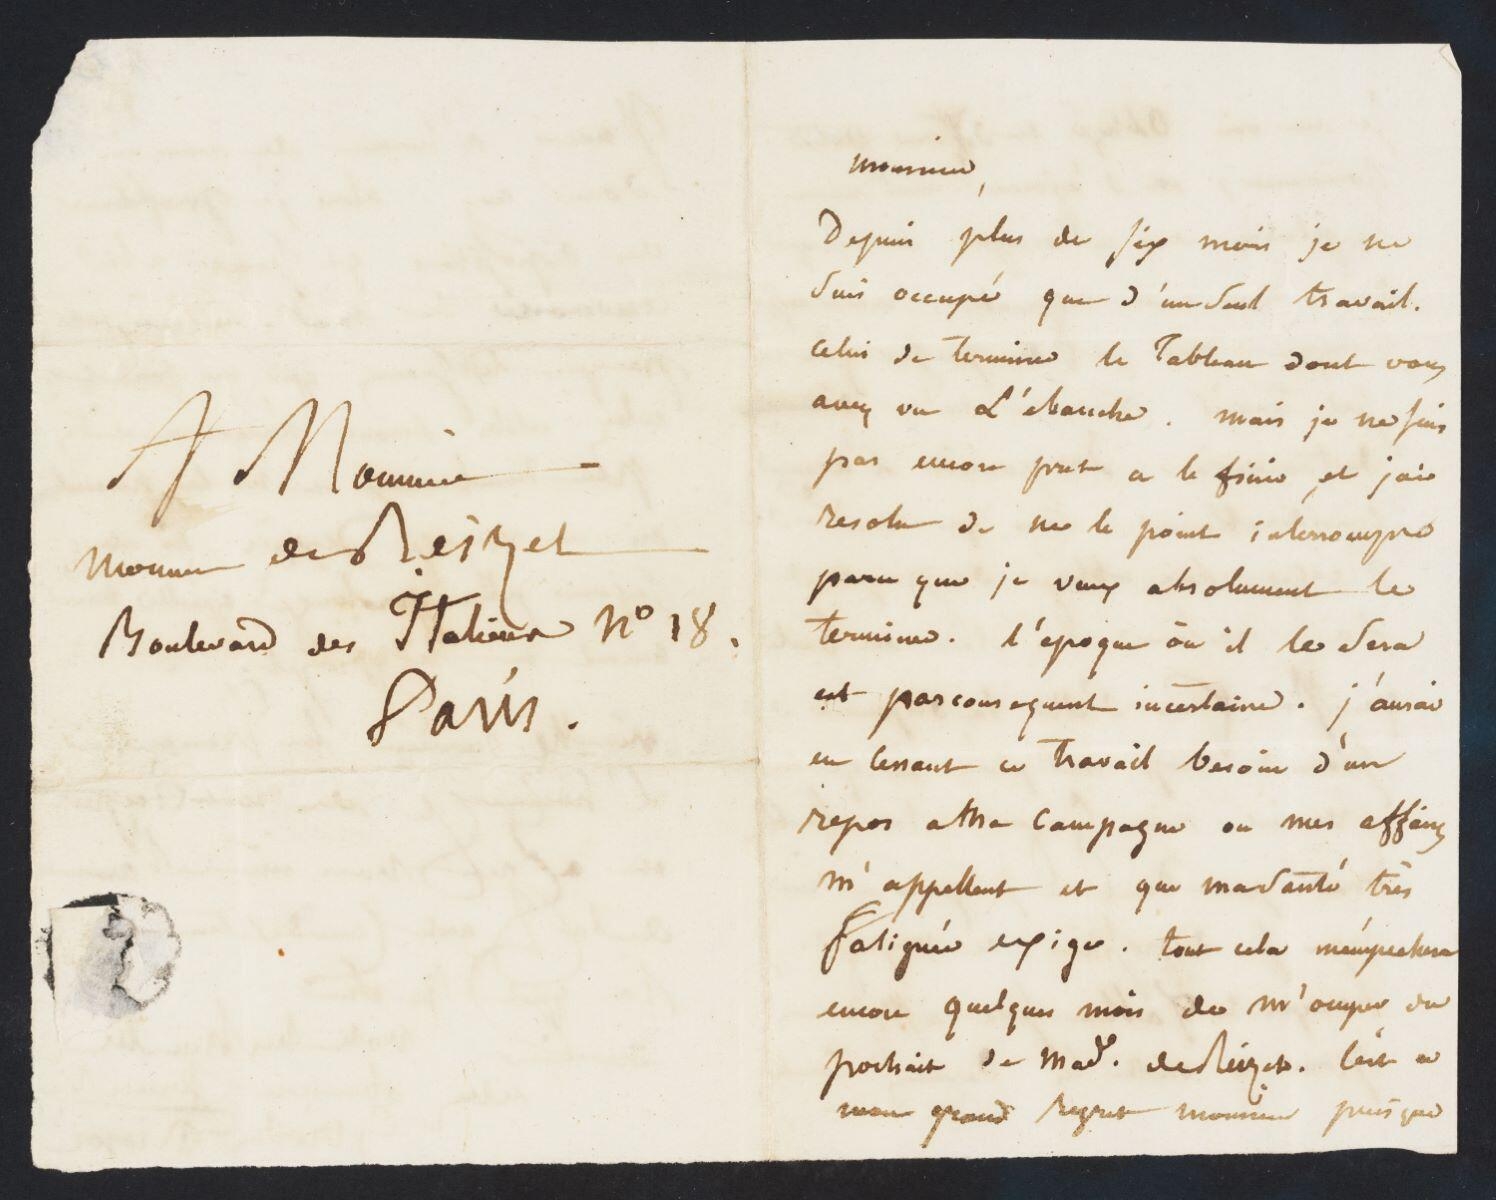 A Monsieur
Monsieur de Reizet
Boulevard des Italiens N° 18.
Paris.
Monsieur,
Depuis plus de six mois je ne
suis occupé que d'un seul travail.
celui de terminer le Tableau dont vous
avez vu L'ebauche. mais je ne suis
pas encore pret a le finir, et j'ai
resolu de ne le point interrompre
parce que je veux absolument le
terminer. l'epoque ou il le sera
est par consequent incertaine. j'aurai
en cessant ce travail besoin d'un
repos a la Campagne ou mes affaires
m'appellent et que ma santé très
fatiguée exige. tout cela m'empechera
encore quelques mois de m'occuper du
portrait de Mad.e de Reizet. C'est a
mon grand regret monsieur puisque